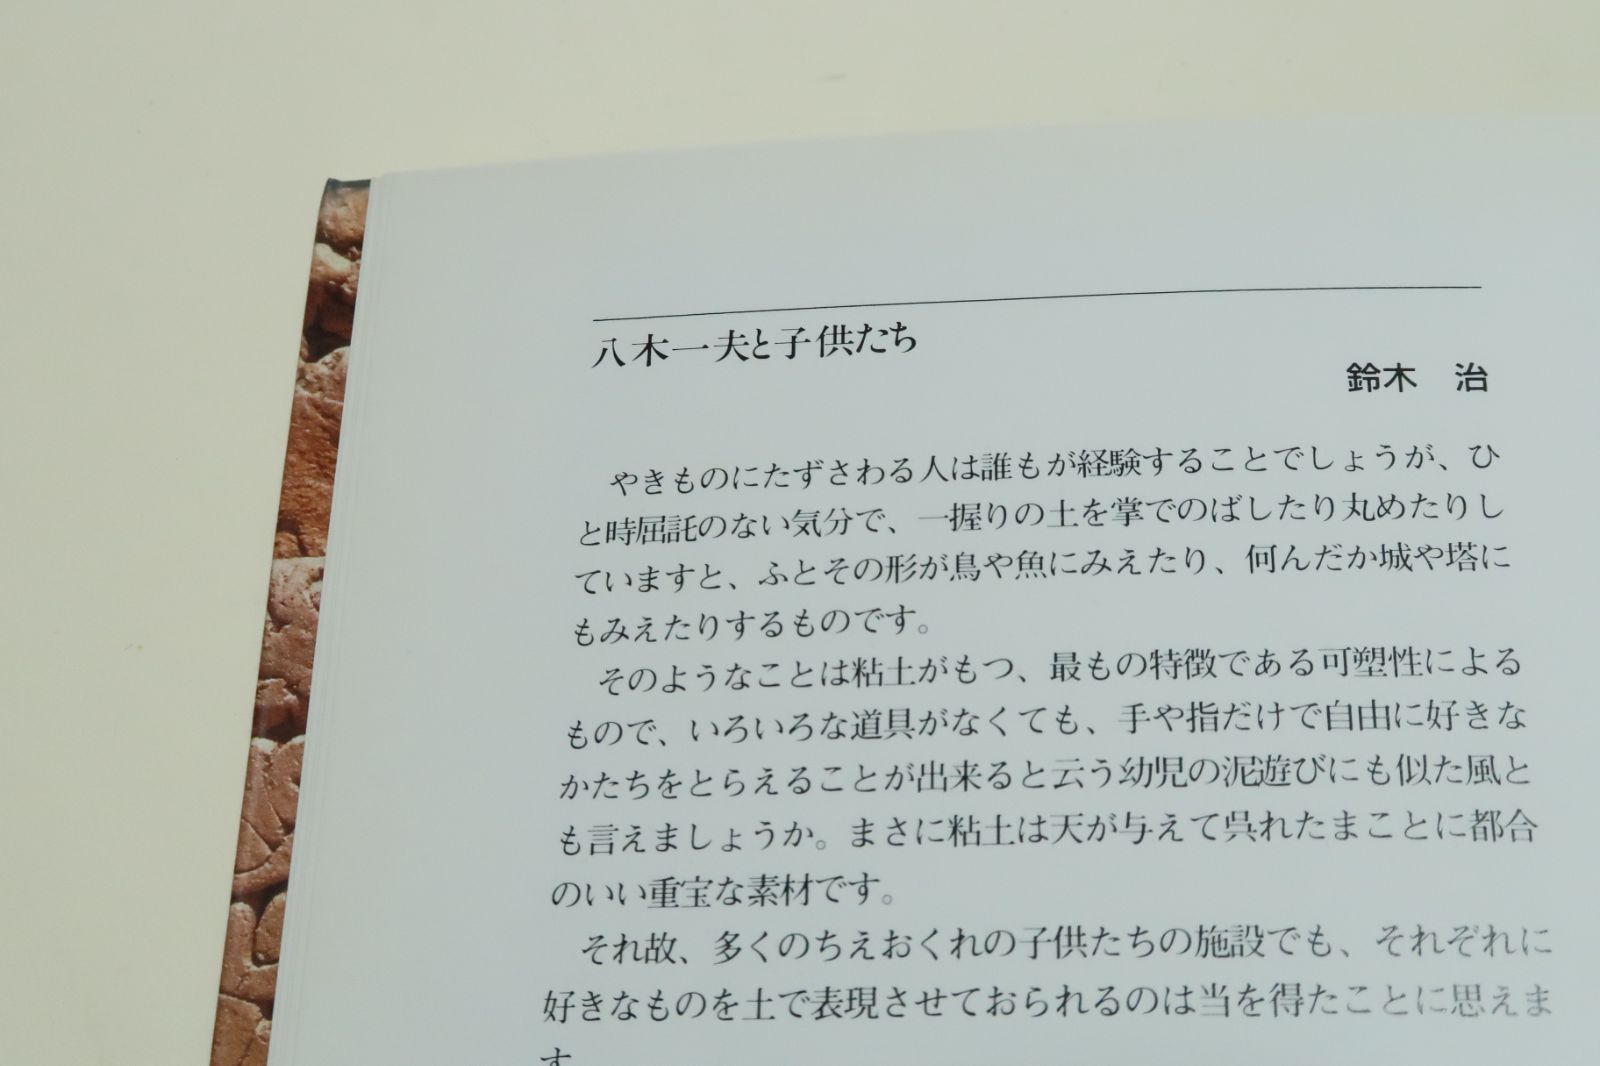 八木一夫と子供たち
鈴木　治
やきものにたずさわる人は誰もが経験することでしょうが、ひ
と時屈託のない気分で、一握りの土を掌でのばしたり丸めたりし
ていますと、ふとその形が鳥や魚にみえたり、何んだか城や塔に
もみえたりするものです。
そのようなことは粘土がもつ、最もの特徴である可塑性による
もので、いろいろな道具がなくても、手や指だけで自由に好きな
かたちをとらえることが出来ると云う幼児の泥遊びにも似た風と
も言えましょうか。まさに粘土は天が与えて呉れたまことに都合
のいい重宝な素材です。
それ故、多くのちえおくれの子供たちの施設でも、それぞれに
好きなものを土で表現させておられるのは当を得たことに思えま
す